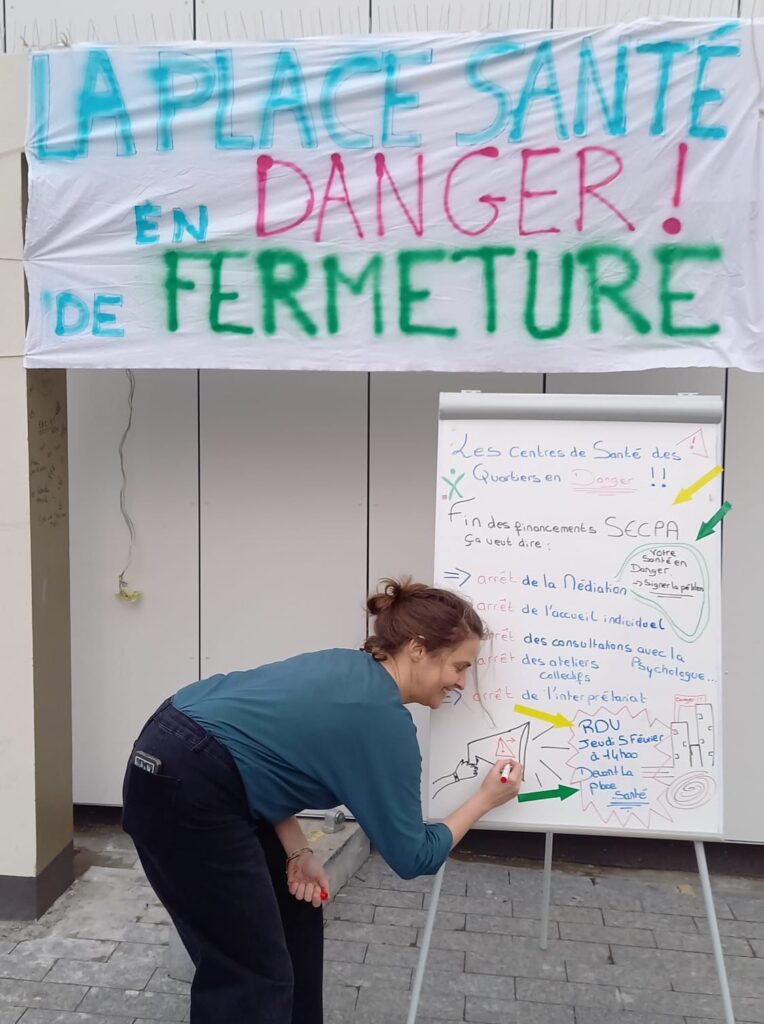 LA PLACE SANTÉ
EN DANGER!
DE FERMETURE
Les Centres de Santé des
Quartiers en Danger !!
Fin des financements SECPA
Ça veut dire :
Votre
Santé en
Danger
→ Signer la pétition
=> arrêt de la Médiation
arrêt de l'accueil individuel
arrêt des consultations avec la
Psychologue...
arrêt des ateliers
collectifs
=> arrêt de l'interprétariat
Danger !!
RDV
Jeudi 5 Février
à 14h00
Devant La
place
Santé